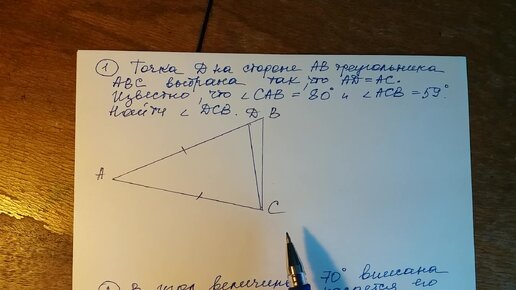 ① Точка D на стороне AB треугольника
ABC выбрана так, что AD=AC.
Известно, что ∠CAB = 80° и ∠ACB = 59°.
Найти ∠DCB.
D B
A
C
① В угол величины 70° вписана
его